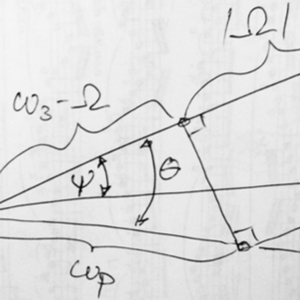 |Ω|
ω₃-Ω
ψ
θ
ωp